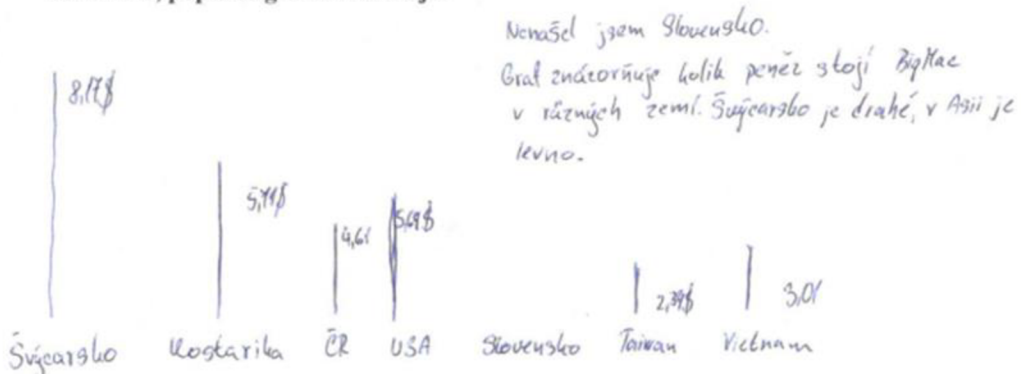 Nenašel jsem Slovensko.
Graf znázorňuje kolik peněz stojí BigMac
v různých zemí. Švýcarsko je drahé, v Asii je
levno.
8,17$
5,69$
2,39$
Švýcarsko Kostarika ČR USA Slovensko Taiwan Vietnam